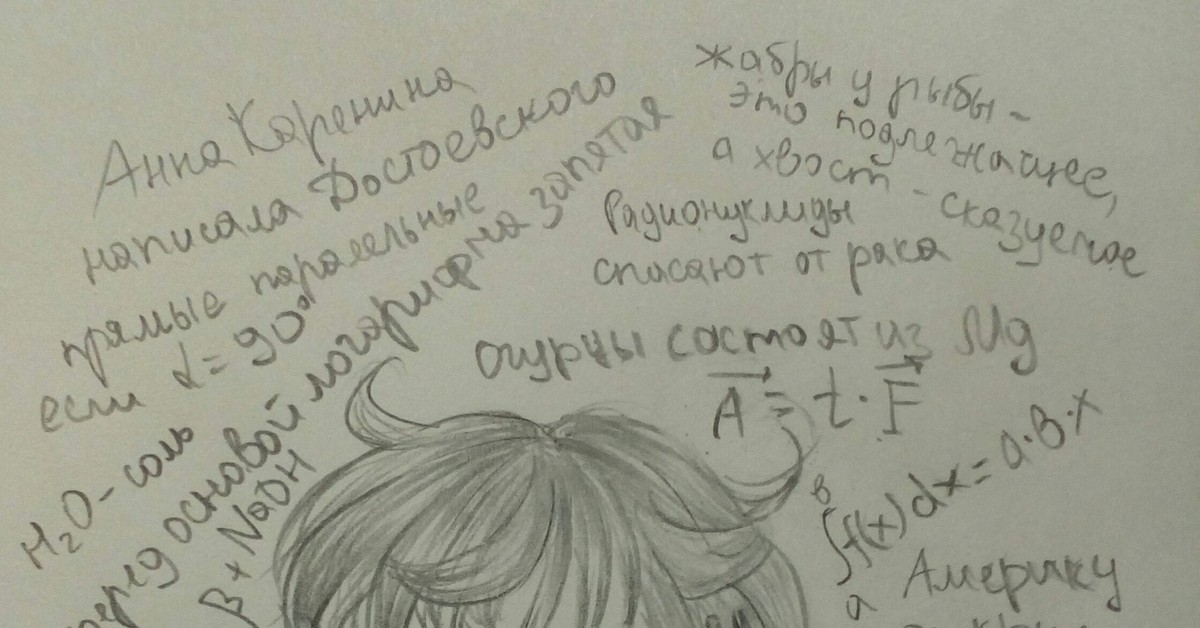 Анна Каренина
написала Достоевского
прямые паралельные
если α = 90°
H₂O - соль
перед основой логарифма запятая
B + NaOH
жабры у рыбы -
это подлежащее,
а хвост - сказуемое
Радионуклиды
спасают от рака
огурцы состоят из Mg
A⃗ = t · F⃗
∫ₐᵇ f(x)dx = a·b·x
Америку